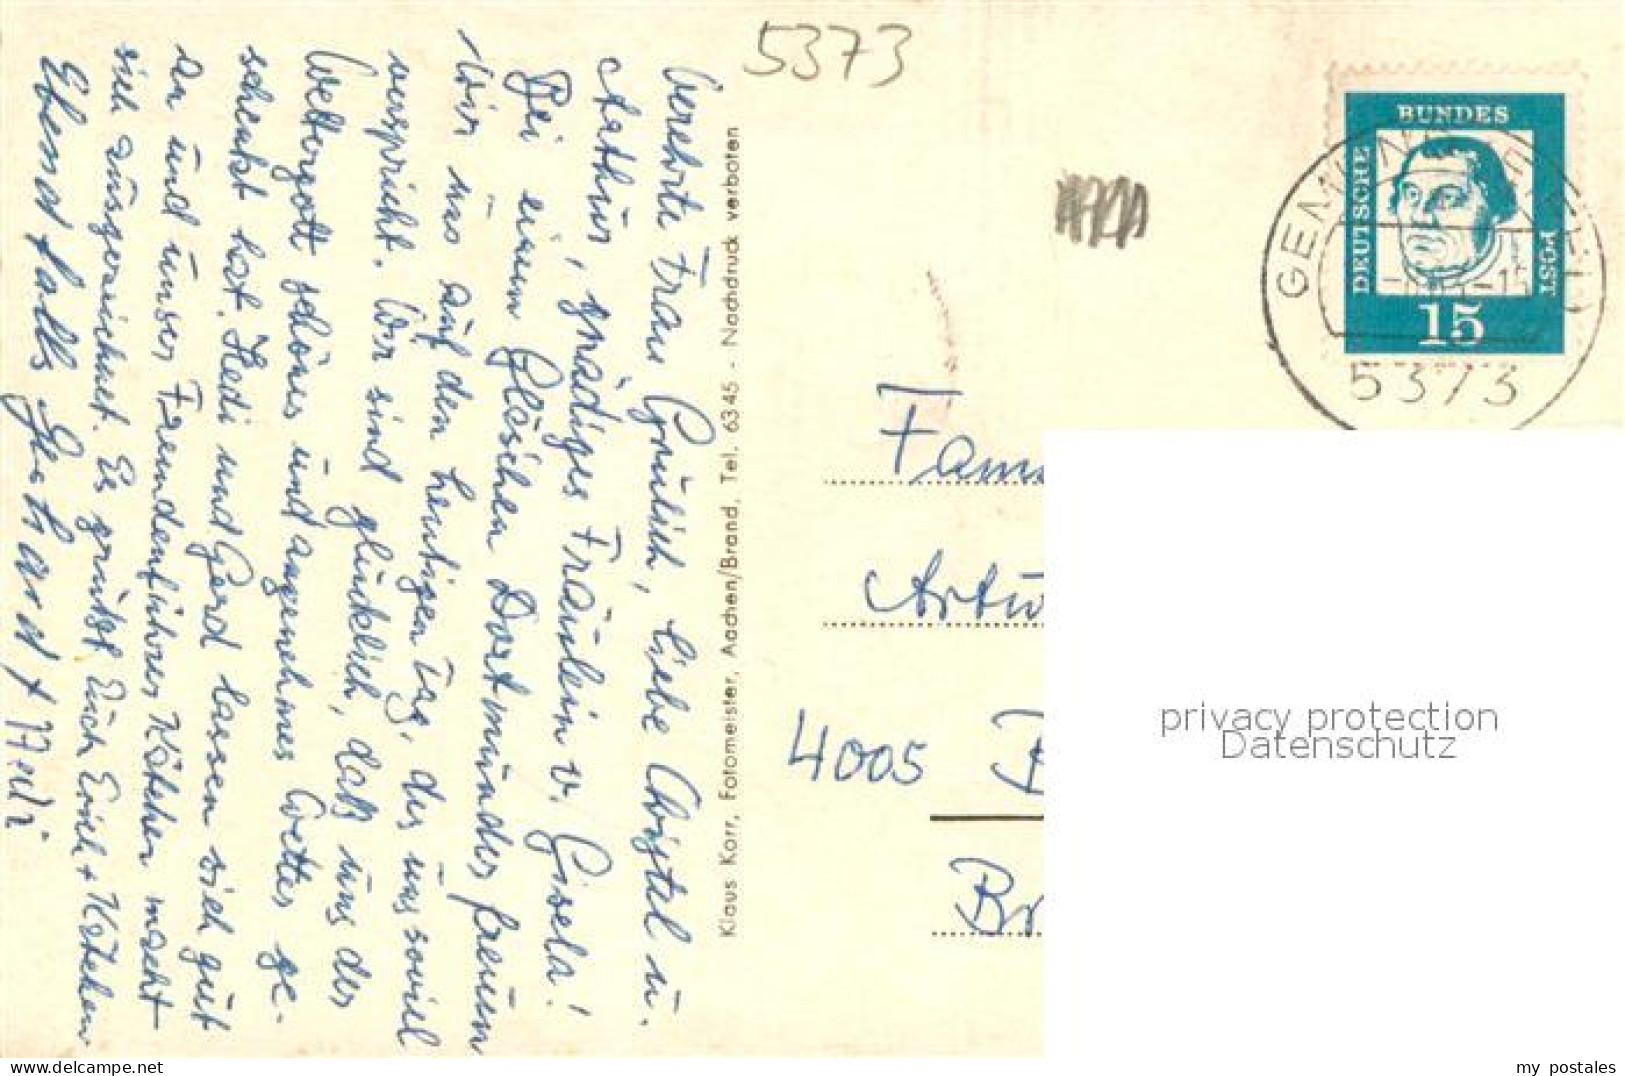 Verehrte Frau Greulich, liebe Christel u.
Arthur, gnädiges Fräulein v. Gisela!
Bei einem Gläschen Dortmunder freuen
wir uns auf den heutigen Tag, der uns soviel
verspricht. Wir sind glücklich, daß uns der
Wettergott schönes und angenehmes Wetter ge-
schenkt hat. Hedi und Gerd lassen sich gut
an und unser Fremdenführer Köbchen macht
sich ausgezeichnet. Es grüßt Euch Erich + Kätchen
Ebenfalls Gerhard +
Klaus Korr, Fotomeister, Aachen/Brand, Tel. 6345 - Nachdruck verboten
5373
DEUTSCHE
BUNDES
POST
15
GEMÜND
5373
Fam
Artu
4005
Br
privacy protection
Datenschutz
my postales